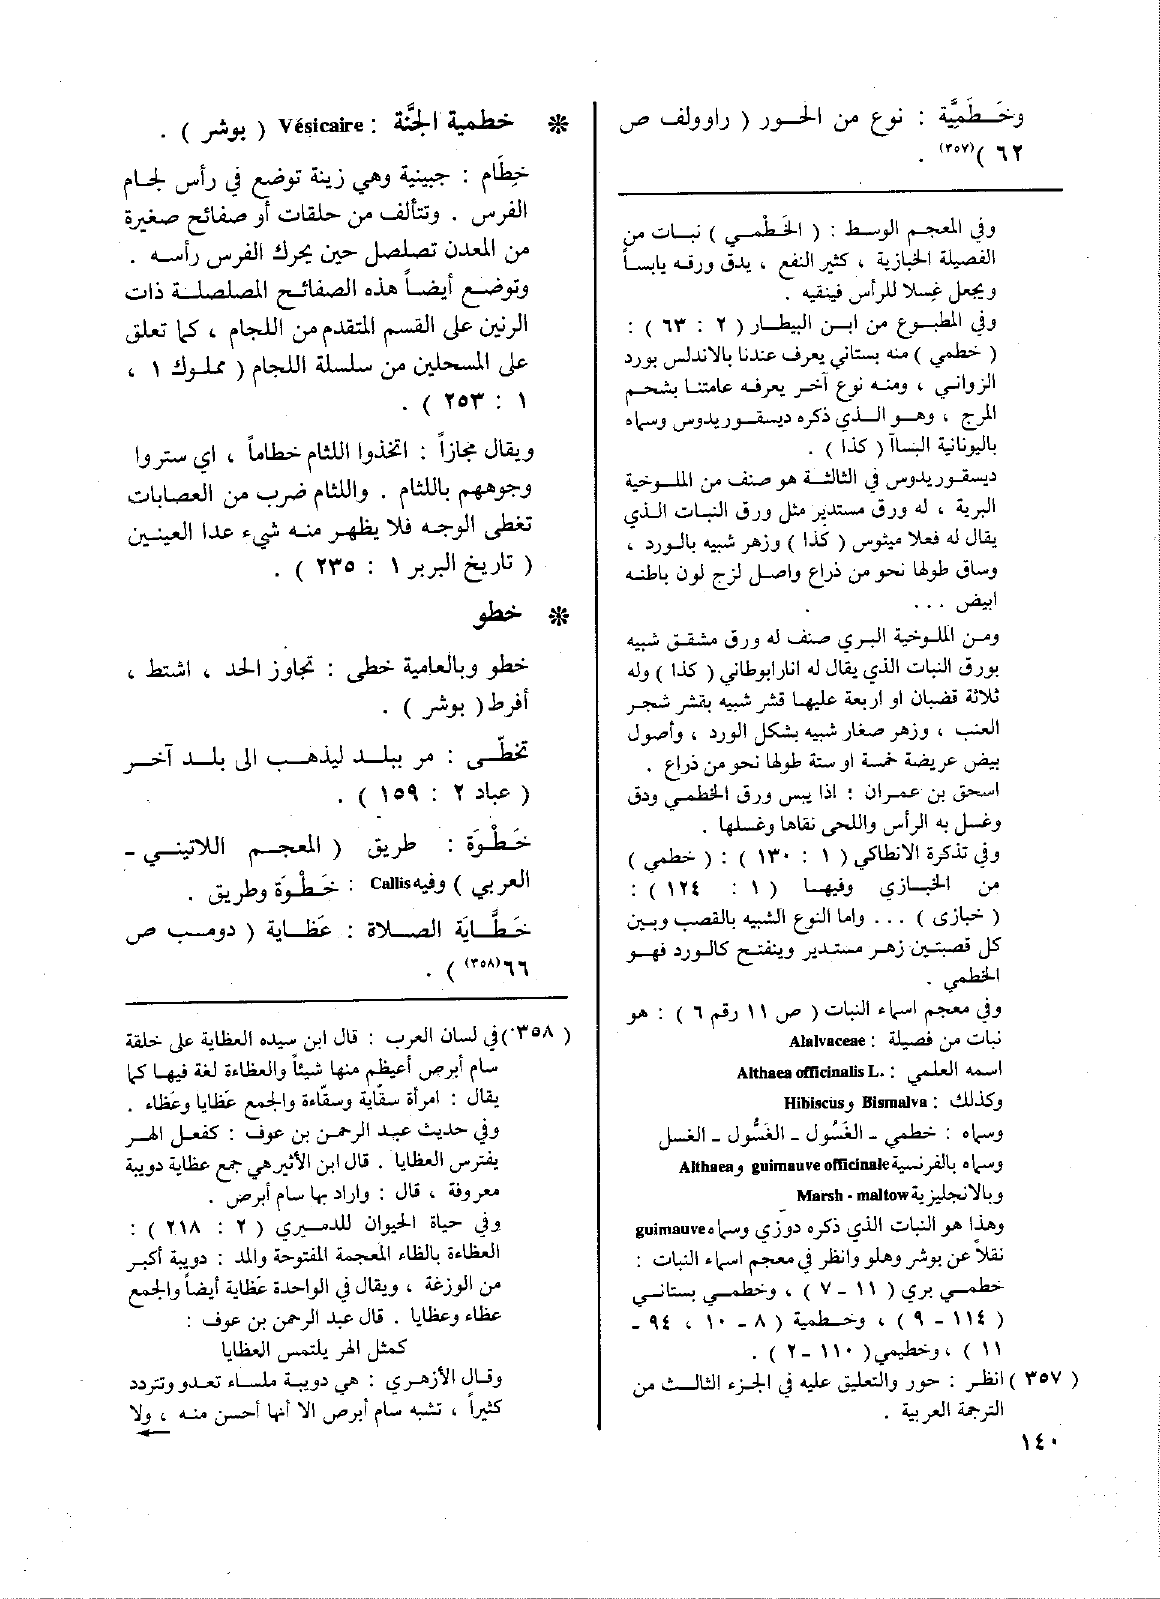 وخَـطَمِيَّة : نوع من الحـور ( راوولف ص
٦٢ )(٣٥٧) .
وفي المعجم الوسط : ( الخَطْمـي ) نبـات من
الفصيلة الخبازية ، كثير النفع ، يدق ورقه يابسـاً
ويجعل غسلا للرأس فينقيه .
وفي المطبوع من ابـن البيطـار ( ٢ : ٦٣ ) :
( خطمي ) منه بستاني يعرف عندنا بالاندلس بورد
الزوانـي ، ومنـه نوع آخـر يعرفه عامتنـا بشحـم
المرج ، وهـو الـذي ذكره ديسقـوريدوس وسماه
باليونانية البتـاآ ( كذا ) .
ديسقوريدوس في الثالثـة هو صنف من الملـوخية
البرية ، له ورق مستدير مثل ورق النبـات الـذي
يقال له فعلا مينوس ( كذا ) وزهر شبيه بالـورد ،
وساق طولها نحو من ذراع واصـل لزج لون باطنـه
ابيض . . .
ومـن الملـوخية البري صنف له ورق مشقـق شبيه
بورق النبات الذي يقال له انارابوطاني ( كذا ) وله
ثلاثة قضبان او اربعة عليهـا قشر شبيه بقشر شجـر
العنب ، وزهر صغار شبيه بشكل الورد ، وأصول
بيض عريضة خمسة او ستة طولها نحو من ذراع .
اسحق بن عمران : اذا يبس ورق الخطمـي ودق
وغسـل به الرأس واللحى نقاها وغسلها .
وفي تذكرة الانطاكي ( ١ : ١٣٠ ) : ( خطمي )
من الخبـازي وفيهـا ( ١ : ١٢٤ ) :
( خبازى ) . . . واما النوع الشبيه بالقصب وبـين
كل قصبتـين زهـر مستدير وينفتـح كالـورد فهـو
الخطمي .
وفي معجم اسماء النبات ( ص ١١ رقم ٦ ) : هو
نبات من فصيلة : Alalvaceae
اسمه العلمي : Althaea officinalis L.
وكذلك : Bismalva و Hibiscus
وسماه : خطمي ـ الغَسُول ـ الغَسُّول ـ الغسل
وسماه بالفرنسية guimauve officinale و Althaea
وبالانجليزية Marsh - maltow
وهذا هو النبات الذي ذكره دوزي وسماه guimauve
نقلاً عن بوشر وهلو وانظر في معجم اسماء النبات :
خطمـي بري ( ١١ ـ ٧ ) ، وخطمـي بستاني
( ١١٤ ـ ٩ ) ، وخـطمية ( ٨ ـ ١٠ ، ٩٤ ـ
١١ ) ، وخطيمي ( ١١٠ ـ ٢ ) .
( ٣٥٧ ) انظر : حور والتعليق عليه في الجزء الثالث من
الترجمة العربية .
١٤٠
* خطمية الجَنَّة : Vésicaire ( بوشر ) .
خِطَام : جبينية وهي زينة توضع في رأس لجام
الفرس . وتتألف من حلقات أو صفائح صغيرة
من المعدن تصلصل حين يحرك الفرس رأسه .
وتوضع أيضاً هذه الصفائح المصلصلة ذات
الرنين على القسم المتقدم من اللجام ، كما تعلق
على المسحلين من سلسلة اللجام ( مملوك ١ ،
١ : ٢٥٣ ) .
ويقال مجازاً : اتخذوا اللثام خطاماً ، اي ستروا
وجوههم باللثام . واللثام ضرب من العصابات
تغطى الوجه فلا يظهر منه شيء عدا العينـين
( تاريخ البربر ١ : ٢٣٥ ) .
* خطو
خطو وبالعامية خطى : تجاوز الحد ، اشتط ،
أفرط ( بوشر ) .
تخطّـى : مر ببلـد ليذهـب الى بلـد آخـر
( عباد ٢ : ١٥٩ ) .
خَـطْـوَة : طريق ( المعجـم اللاتينـي ـ
العربي ) وفيه Callis : خَـطْـوَة وطريق .
خَـطَّـايَة الصـلاة : عَظَاية ( دومـب ص
٦٦(٣٥٨) ) .
( ٣٥٨ ) في لسان العرب : قال ابن سيده العظاية على خلقة
سام أبرص أعيظم منها شيئاً والعظاءة لغة فيهـا كما
يقال : امرأة سقّاية وسقّاءة والجمع عَظايا وعَظاء .
وفي حديث عبد الرحمـن بن عوف : كفعـل الهـر
يفترس العظايا . قال ابن الأثيرهي جمع عظاية دويبة
معروفة ، قال : واراد بها سام أبرص .
وفي حياة الحيوان للدمـيري ( ٢ : ٢١٨ ) :
العظاءة بالظاء المعجمة المفتوحة والمد : دويبة أكبر
من الوزغة ، ويقال في الواحدة عَظاية أيضاً والجمع
عظاء وعظايا . قال عبد الرحمن بن عوف :
كمثل الهر يلتمس العظايا
وقـال الأزهـري : هي دويبة ملسـاء تعدو وتتردد
كثيراً ، تشبه سام أبرص الا أنها أحسن منـه ، ولا